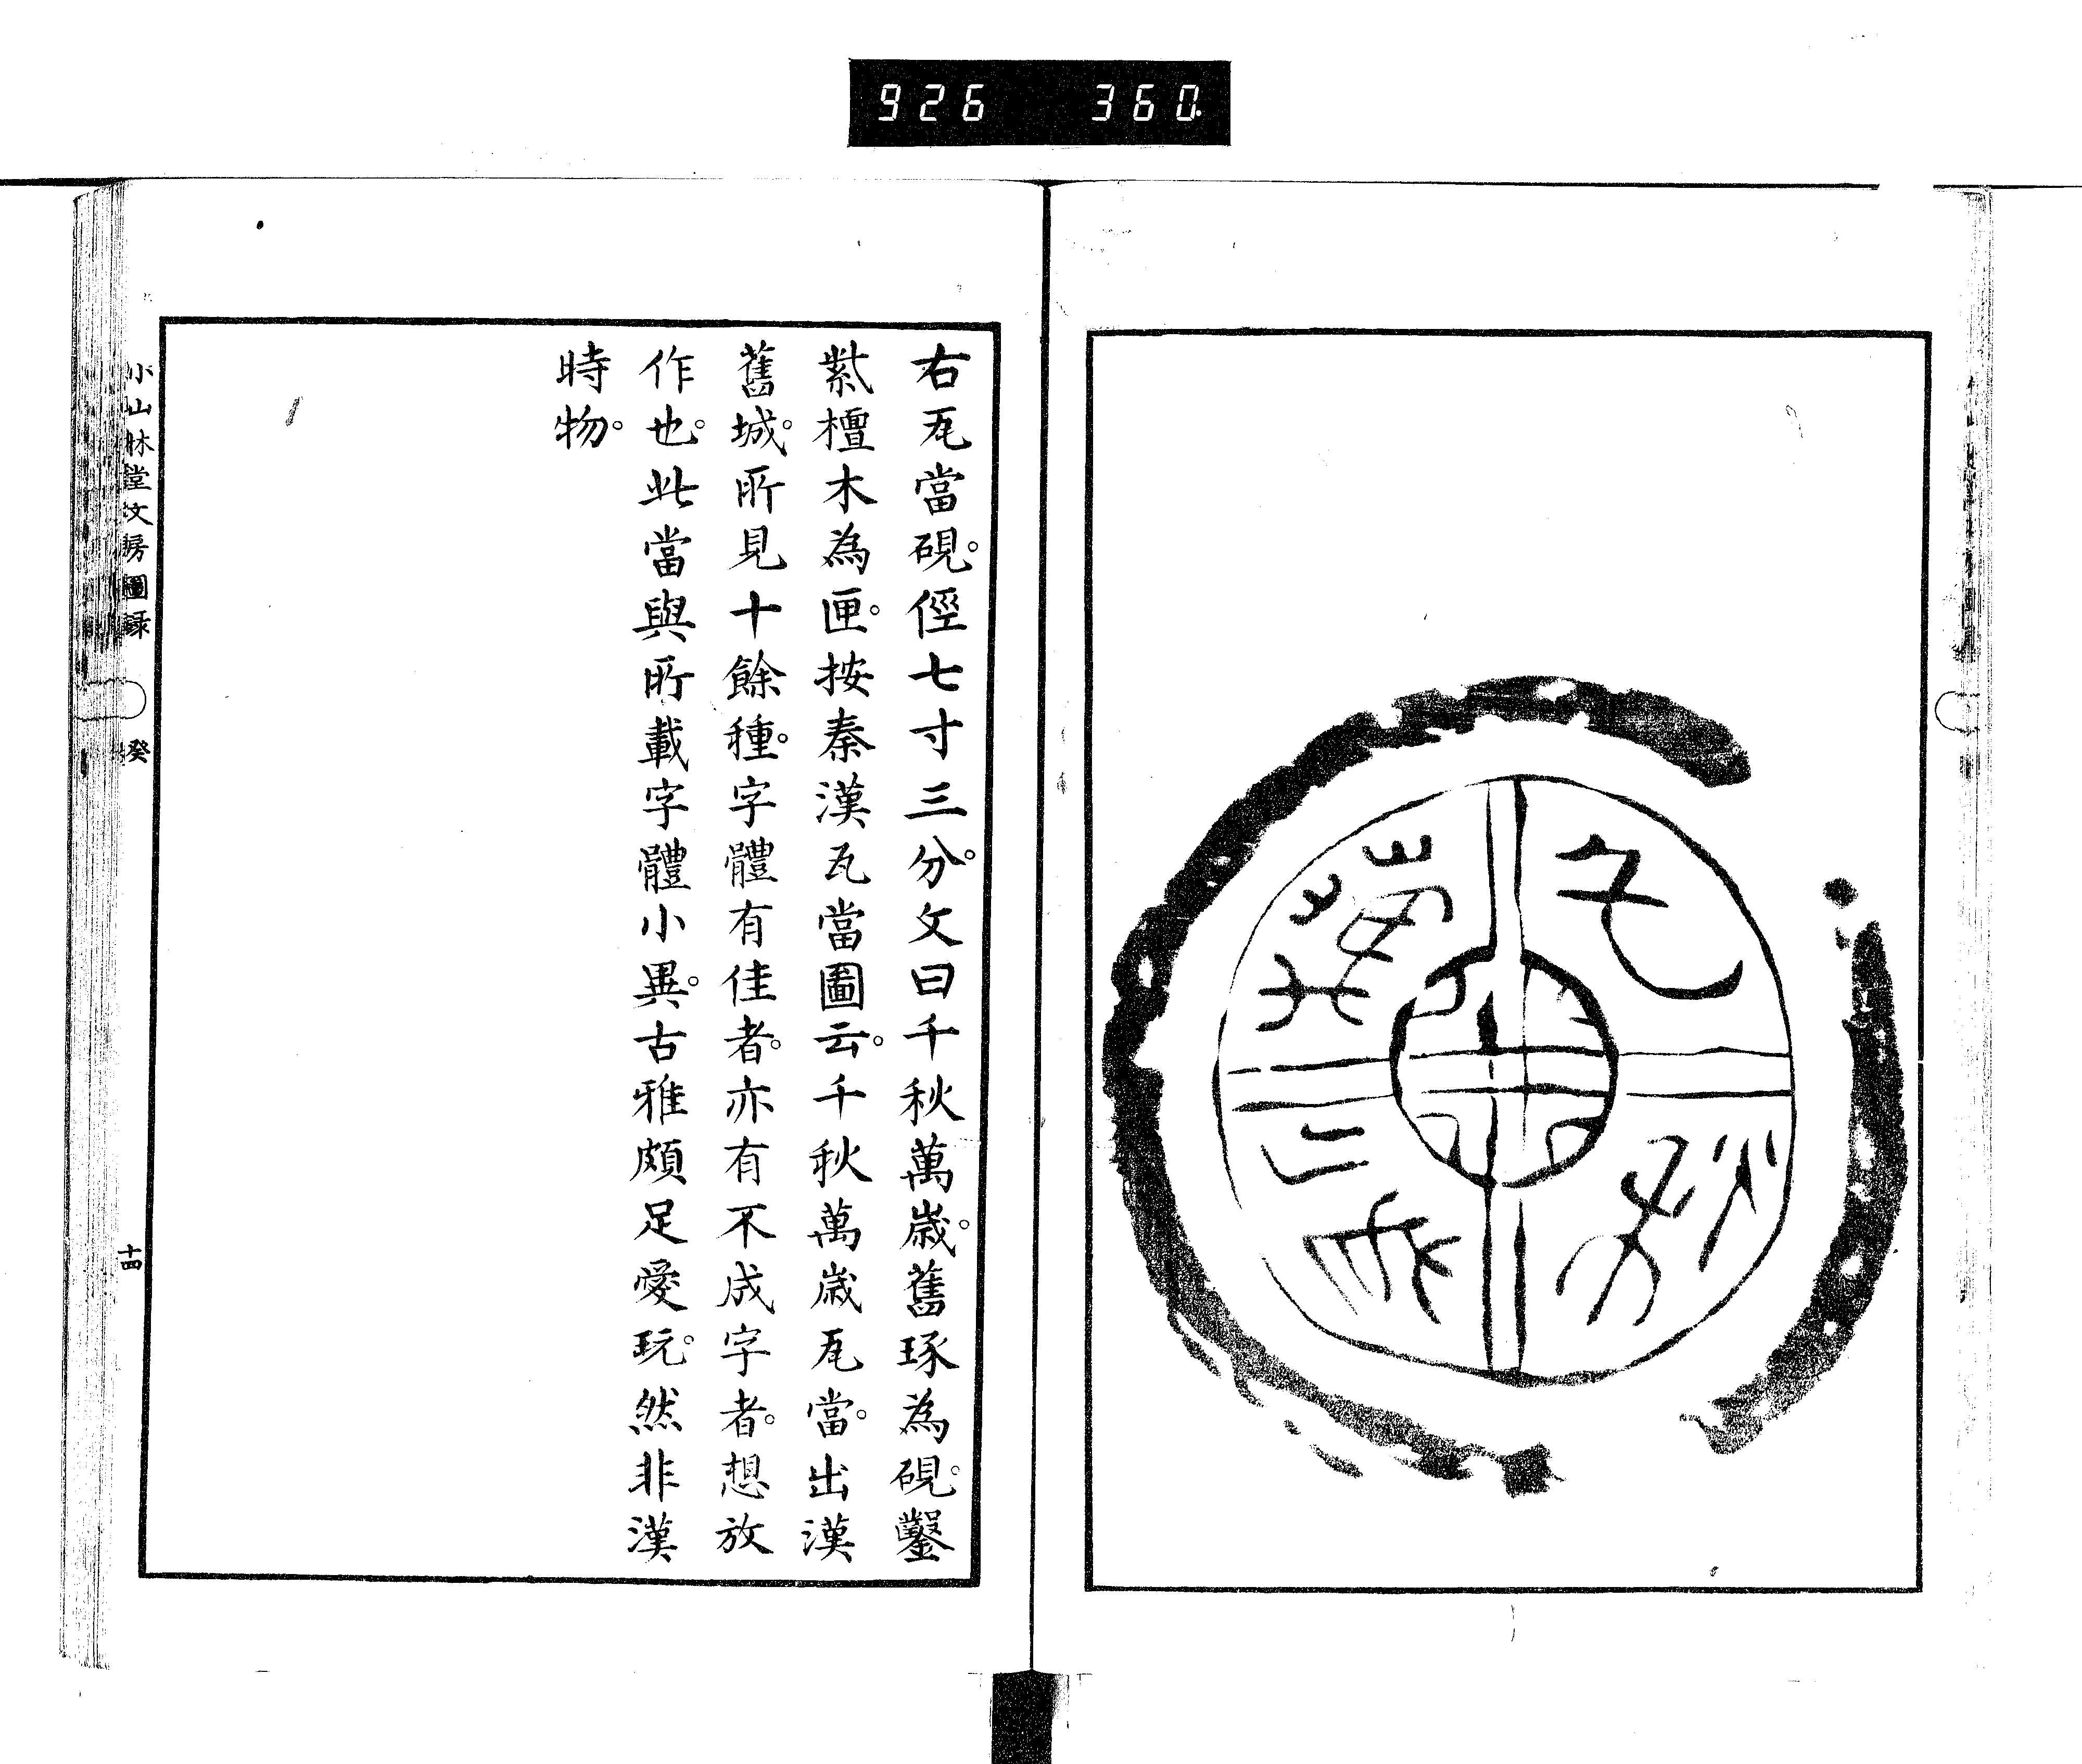 926 360
右瓦當硯。徑七寸三分。文曰千秋萬歲。舊琢為硯。鑿
紫檀木為匣。按秦漢瓦當圖云。千秋萬歲瓦當。出漢
舊城。所見十餘種。字體有佳者。亦有不成字者。想放
作也。此當與所載字體小異。古雅頗足愛玩。然非漢
時物。
小山林堂文房圖錄 癸
十四